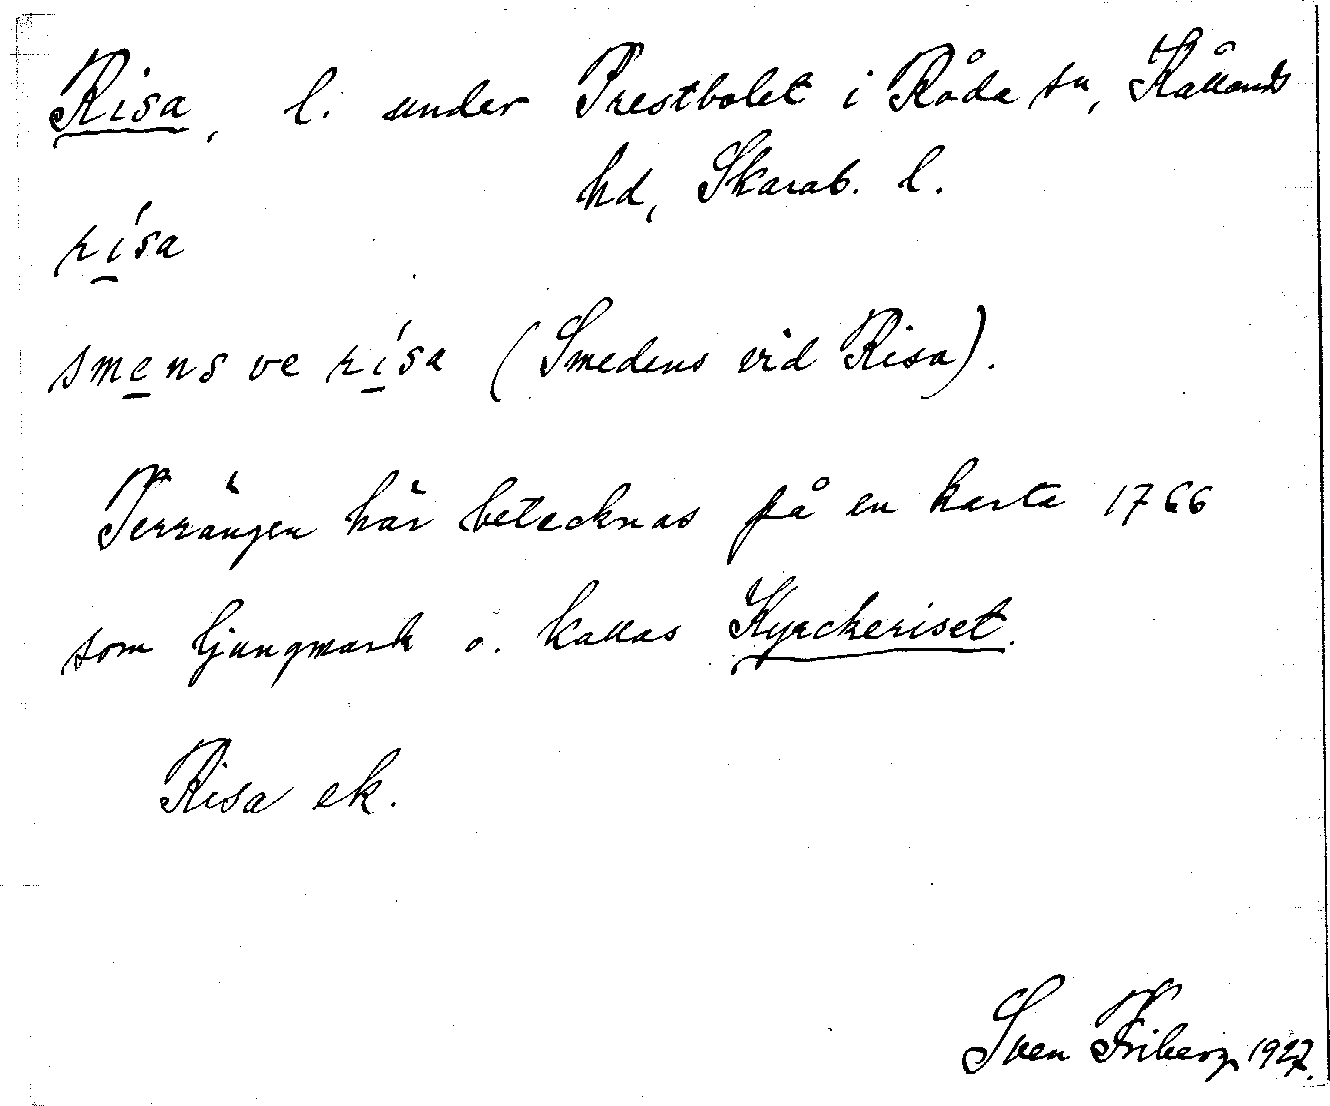 Risa, l. under Prestbolet i Råda sn, Kållands
hd, Skarab. l.
rísa
smens ve rísa (Smedens vid Risa).
Terrängen här betecknas på en karta 1766
som ljungmark o. kallas Kyrckeriset.
Risa ek.
Sven Friberg 1927.